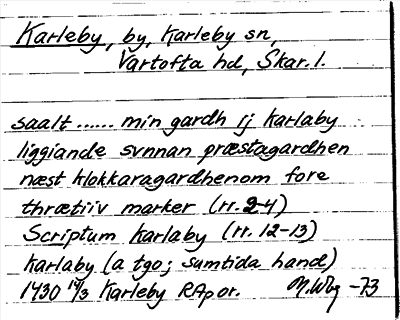 Karleby, by, Karleby sn,
Vartofta hd, Skar. l.
saalt ...... min gardh ij karlaby
liggiande svnnan præstagardhen
næst klokkaragardhenom fore
thrætiiv marker (rr. 2-4)
Scriptum karlaby (rr. 12-13)
karlaby (a tgo; samtida hand)
1430 14/3 Karleby RAp or. -73